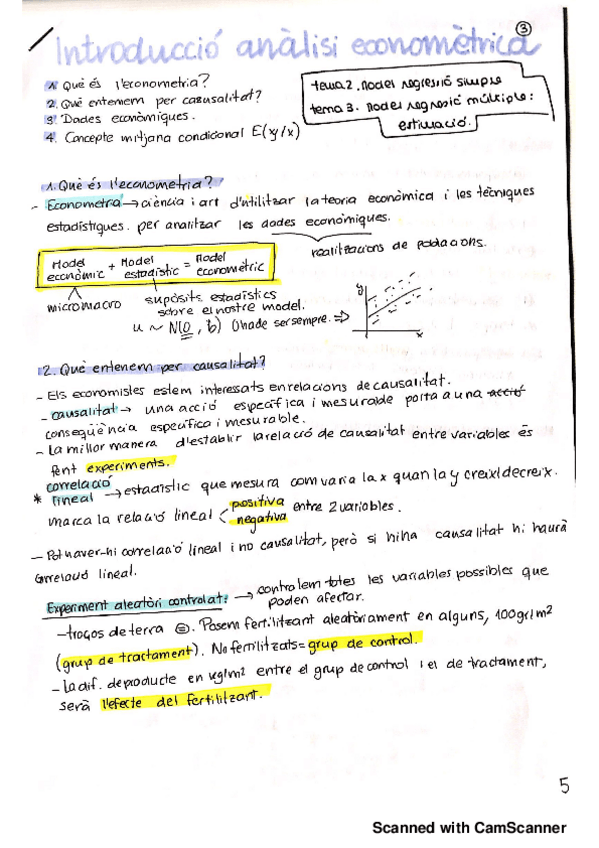 ③
Introducció anàlisi economètrica
1. Què és l'econometria?
2. Què entenem per causualitat?
3. Dades econòmiques.
4. Concepte mitjana condicional E(y/x)
tema 2. Model regressió simple
tema 3. Model regresió múltiple:
estimació.
1. Què és l'econometria?
- Econometra → ciència i art d'utilitzar la teoria econòmica i les tècniques
estadístiques. per analitzar les dades econòmiques.
realitzacions de poblacions.
Model econòmic + Model estadístic = Model economètric
micromacro
supòsits estadístics
sobre el nostre model.
u ~ N(0, b) 0 ha de ser sempre. ⇒
y
x
2. Què entenem per causalitat?
- Els economistes estem interessats en relacions de causalitat.
- causalitat → una acció específica i mesurable porta a una acció
conseqüència específica i mesurable.
- La millor manera d'establir la relació de causalitat entre variables és
fent experiments.
correlació
* lineal → estadístic que mesura com varia la x quan la y creix/decreix.
marca la relació lineal < positiva negativa entre 2 variables.
- Pot haver-hi correlació lineal i no causalitat, però si hi ha causalitat hi haurà
correlació lineal.
Experiment aleatòri controlat: → controlem totes les variables possibles que
poden afectar.
- troços de terra ⊜. Posem fertilitzant aleatòriament en alguns, 100gr/m²
(grup de tractament). No fertilitzats = grup de control.
- La dif. de producte en kg/m² entre el grup de control i el de tractament,
serà l'efecte del fertilitzant.
5
Scanned with CamScanner